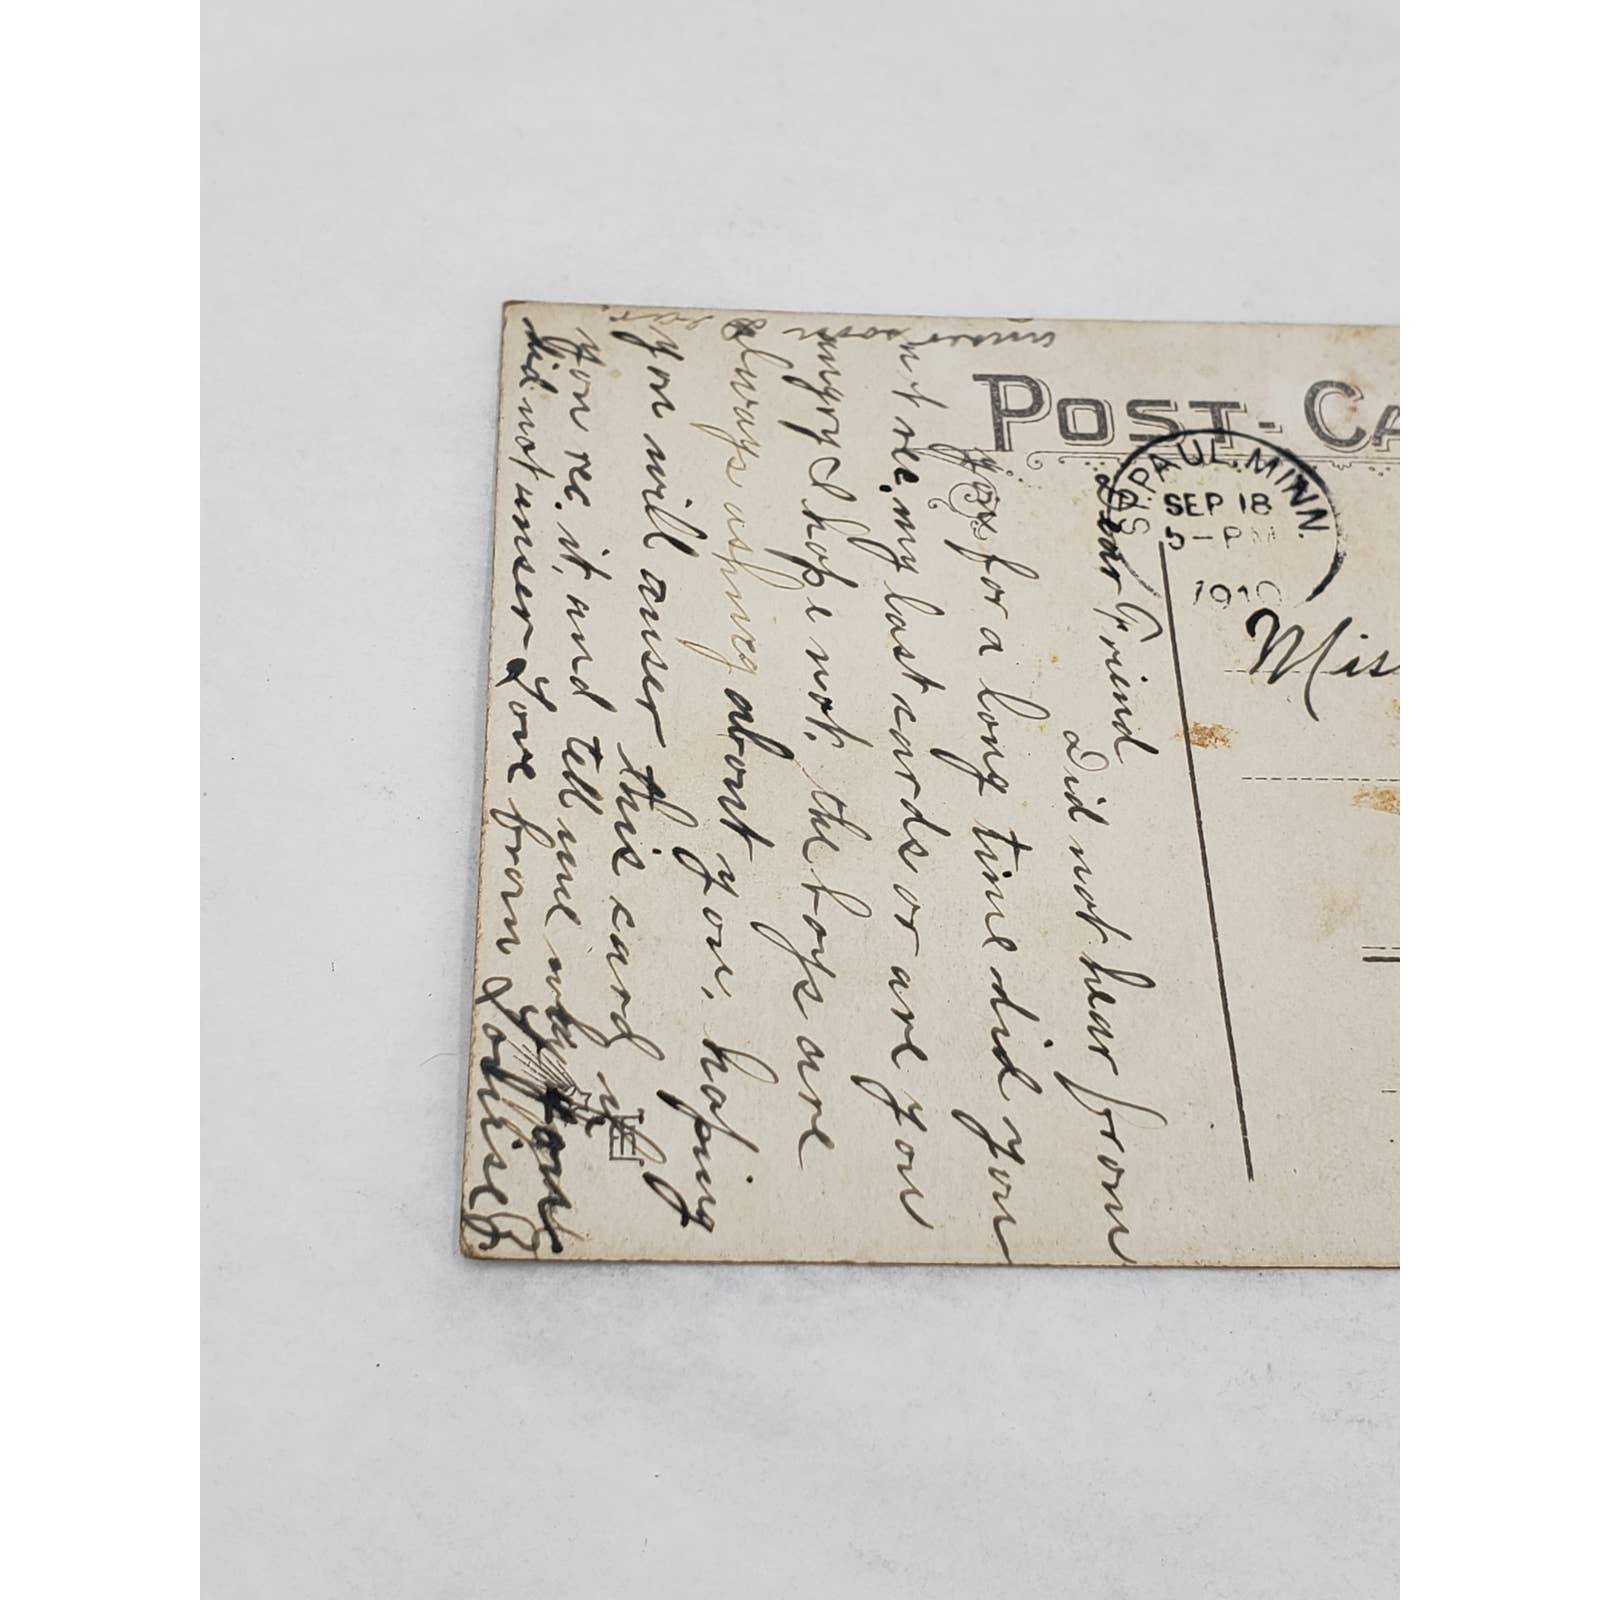 POST-CA
ST. PAUL. MINN.
SEP 18
5 - P M
1910
Mis
Dear Friend
Did not hear from
you for a long time did you
nt rec. my last cards or are you
angry I hope not. the boys are
always asking about you. hoping
you will anser this card if
you rec. it, and tell me why you
did not anser Love from Louise
anser soon